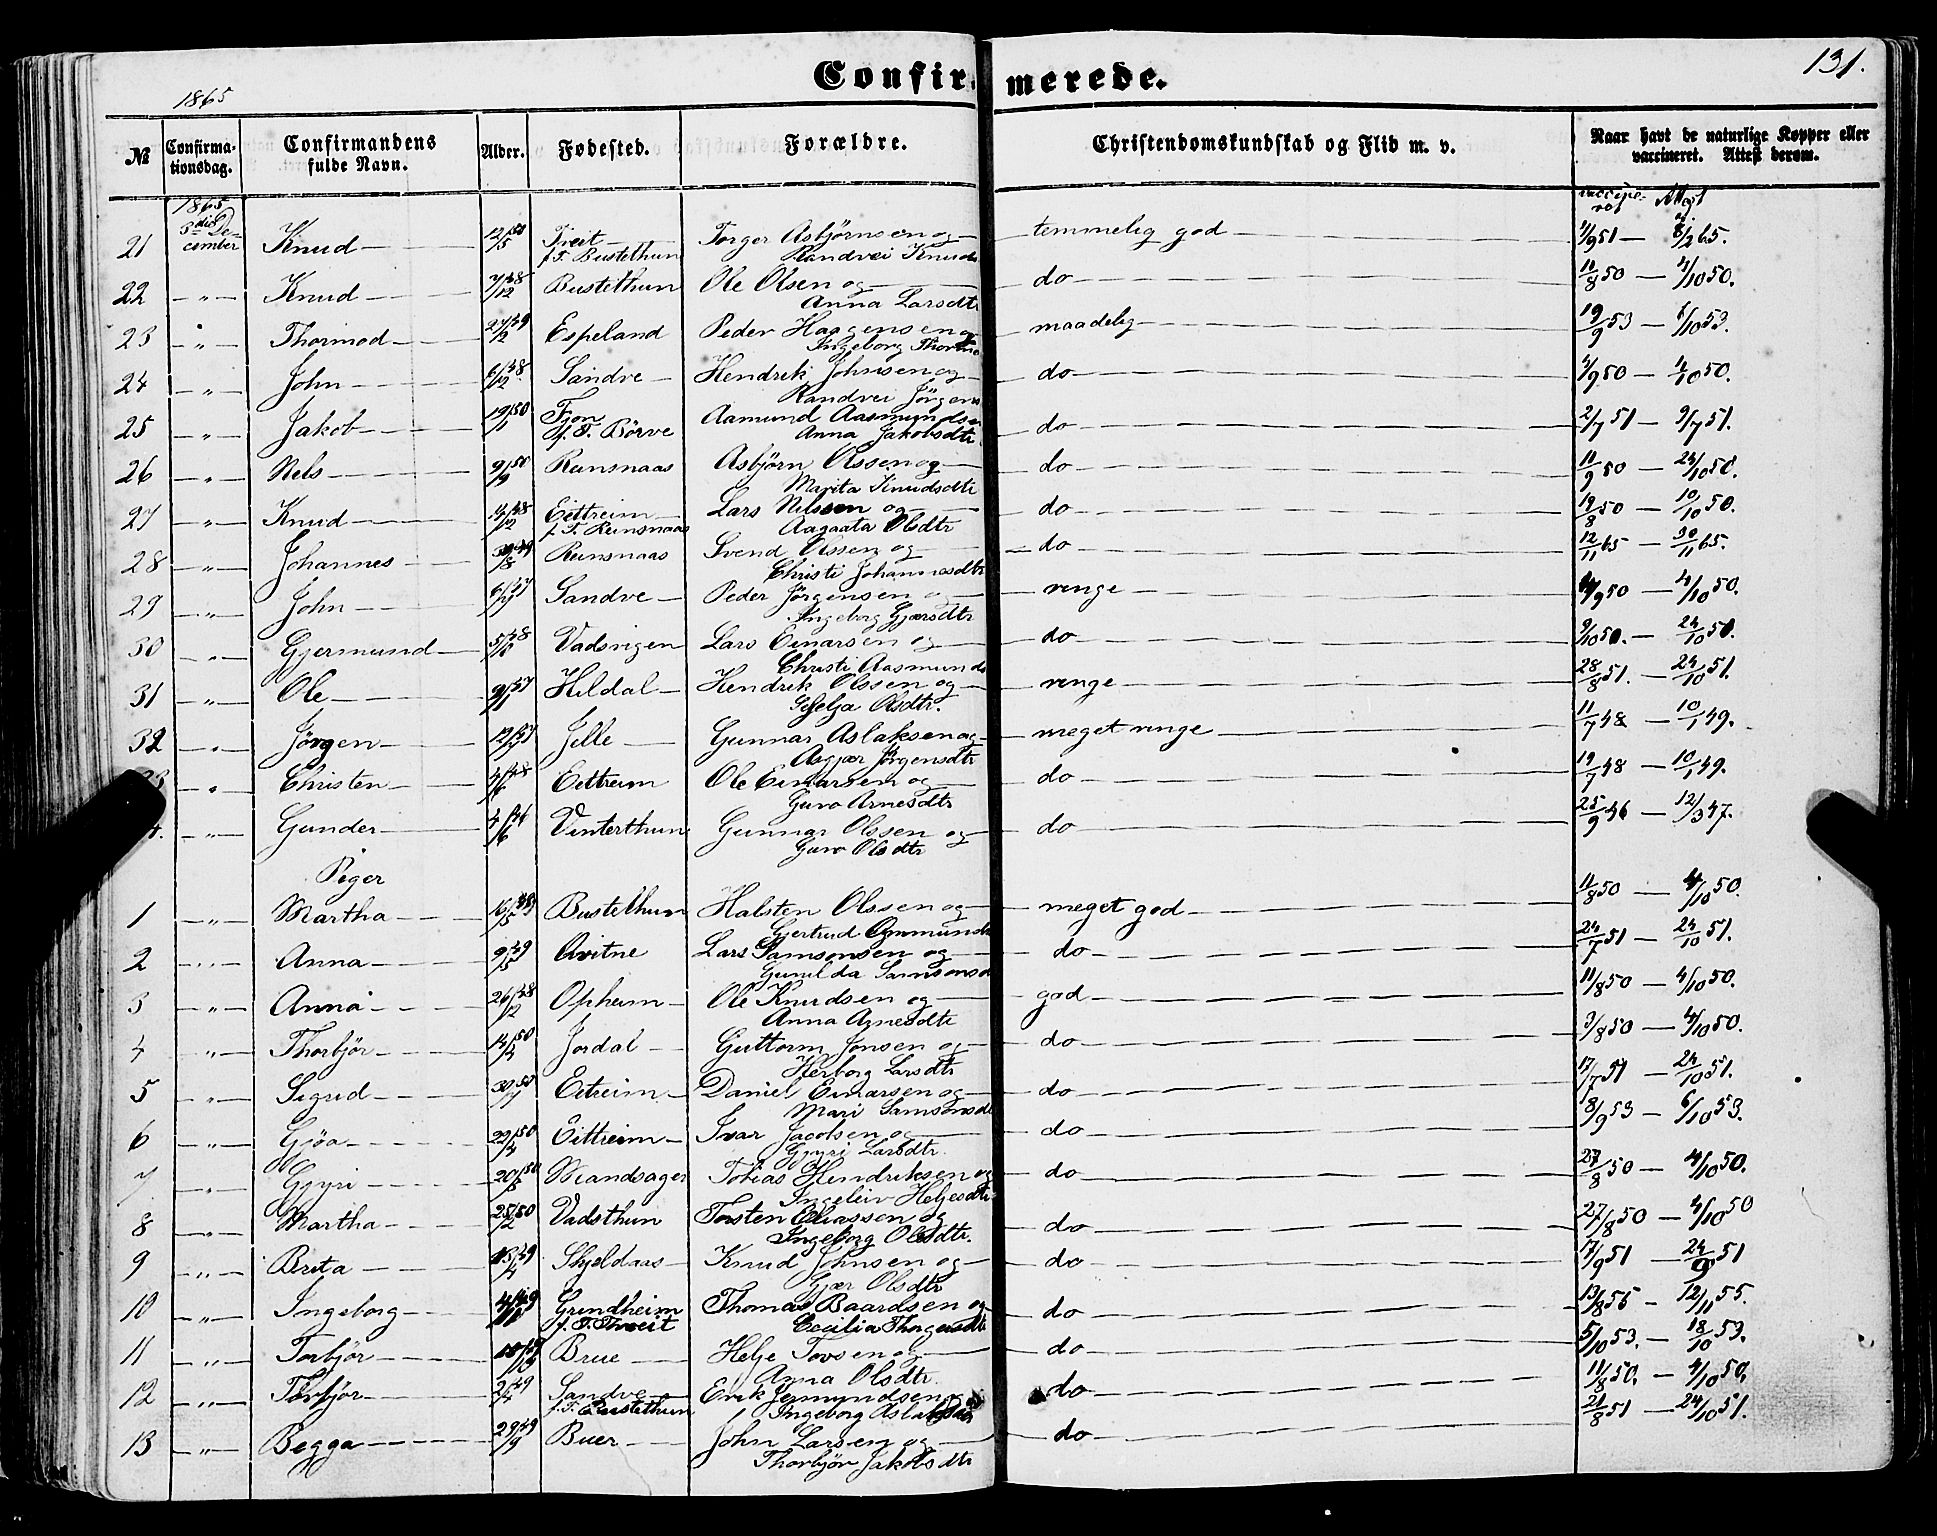 Confirmerede.
131.
1865
№ Confirmationsdag. Confirmandens fulde Navn. Alder. Fødested. Forældre. Christendomskundskab og Flid m. v. Naar havt de naturlige Kopper eller vaccineret. Attest derom.
1865
21 3die December Knud 12/5 50 Treit f. T. Bustethun Torger Asbjørnsen og Randvei temmelig god 4/9 51 — 8/2 65.
22 " Knud Bustethun Ole Olsen og Anna Larsdtr do 11/8 50 — 4/10 50.
23 " Thormod 27/2 49 Espeland Peder Haagensen og Ingeborg maadelig 19/9 53 — 6/10 53.
24 " John 6/12 48 Sandve Hendrik Johnsen og Randvei Jörgens do 4/9 50 — 4/10 50.
25 " Jakob 19/1 50 Fjon f. T. Börve Aamund Aasmundsen Anna Jakobsdtr do 2/7 51 — 9/7 51.
26 " Nels 9/9 50 Runsnaas Asbjörn Olssen og Marita Knudsdtr do 11/9 50 — 24/10 50.
27 " Knud Eittreim f. T. Runsnaas Lars Nilssen og Aagaata Olsdtr do 19/8 50 — 10/10 50.
28 " Johannes Runsnaas Svend Olssen og Christi Johannesdtr do 12/11 65 — 30/11 65.
29 " John Sandve Peder Jörgensen og Ingeborg Gjærsdtr ringe 4/9 50 — 4/10 50.
30 " Gjermund Lars Einarsen og Christi Aasmunds do 9/10 50. — 24/10 50.
31 " Ole Hildal Hendrik Olssen og Olsdtr. ringe 28/8 51. — 24/10 51.
32 " Jörgen Jelle Gunnar Aslaksen og Jörgensdtr meget ringe 11/7 48 — 10/1 49.
" Christen 4/6 48 Eittreim Ole Einarsen og Guro Arnesdtr do 19/7 48 — 10/1 49.
" Gunder 4/6 46 Vinterthun Gunnar Olssen og Guro Olsdtr do 25/9 46 — 12/3 47.
Piger
1 " Martha Bustethun Halsten Olssen og Gjertrud meget god 11/8 50 — 4/10 50.
2 " Anna 9/5 49 Qvitne Lars Samsonsen og Gunilda Samsonsd do 24/7 51 — 24/10 51.
3 " Anna 26/2 48 Opheim Ole Knudsen og Anna Arnesdtr god 11/8 50 — 4/10 50.
4 " Thorbjör 14/4 50 Jordal Guttorm Jonsen og Herborg Larsdtr do 3/8 50 — 4/10 50.
5 " Sigrid Eitreim Daniel Einarsen og Mari Samsonsd do 17/7 51 — 24/10 51.
6 " Gjöa 22/4 50 Eittreim Ivar Jacobsen og Gjyri Larsdtr. do 8/9 53 — 6/10 53.
7 " Gjyri Mandsager Tobias Hendriksen og Ingeleiv Heljesdtr do 27/8 50 — 4/10 50.
8 " Martha 25/2 50 Vadsthun Torsten Eliassen og Ingeborg Olsdtr. do 27/8 50 — 4/10 50
9 " Brita Skjeldaas Knud Johnsen og Gjær Olsdtr do 17/9 51 — 24/9 51
10 " Ingeborg Grindheim f. T. Threit Thomas Baardsen og Cecilia do 13/8 55 — 12/11 55.
11 " Torbjör Brue Helje Tovsen og Anna Olsdtr. do 5/10 53. — 18/10 53.
12 " Torbjör 2/4 49 Sandve f. T. Bustethun Erik og Ingeborg do 11/8 50. — 4/10 50.
13 " Begga 29/9 49 Buer John Larsen og Thorbjör Jakobsdtr do 21/8 51 — 24/10 51.